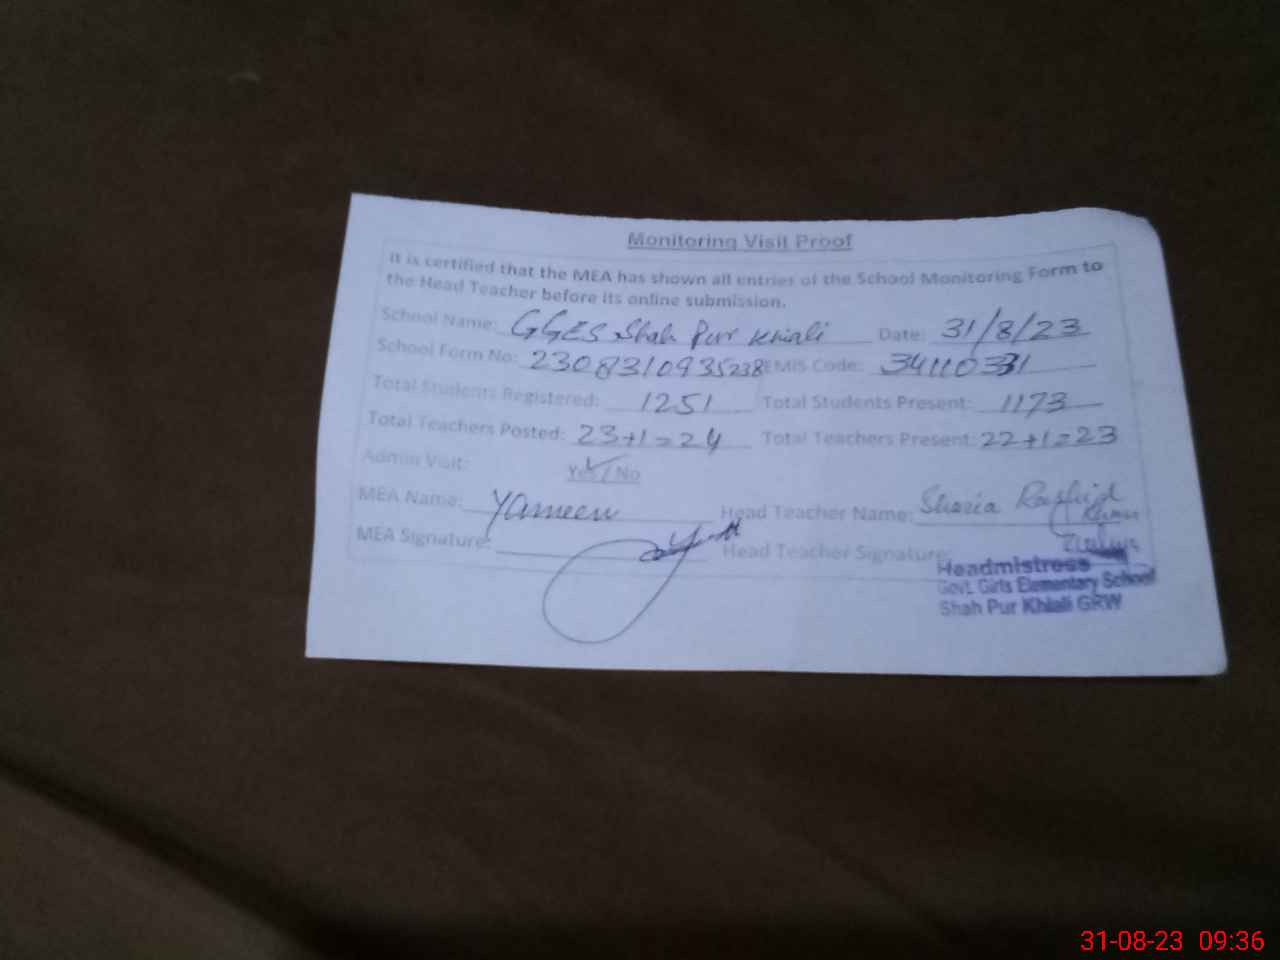 Monitoring Visit Proof
It is certified that the MEA has shown all entries of the School Monitoring Form to
the Head Teacher before its online submission.
School Name: GGES Shah Pur Khiali Date: 31/8/23
School Form No: 2308310935238 EMIS Code: 34110331
Total Students Registered: 1251 Total Students Present: 1173
Total Teachers Posted: 23+1=24 Total Teachers Present: 22+1=23
Admin Visit: Yes / No
MEA Name: Yameen Head Teacher Name: Shazia Rashid
MEA Signature: Head Teacher Signature:
Headmistress
Govt. Girls Elementary School
Shah Pur Khiali GRW
31-08-23 09:36